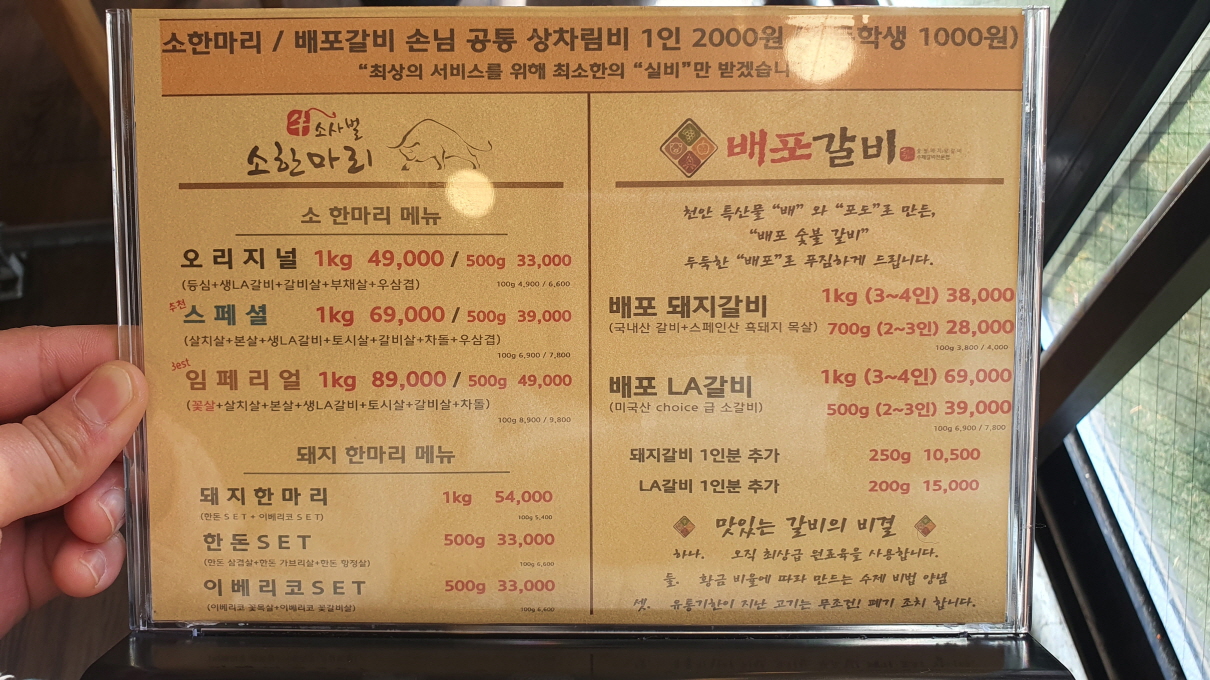 소한마리 / 배포갈비 손님 공통 상차림비 1인 2000원 학생 1000원)
“최상의 서비스를 위해 최소한의 “실비”만 받겠습니
소사벌
소한마리
소 한마리 메뉴
오리지널 1kg 49,000 / 500g 33,000
(등심+생LA갈비+갈비살+부채살+우삼겹)
100g 4,900 / 6,600
추천
스페셜 1kg 69,000 / 500g 39,000
(살치살+본살+생LA갈비+토시살+갈비살+차돌+우삼겹)
100g 6,900 / 7,800
Best
임페리얼 1kg 89,000 / 500g 49,000
(꽃살+살치살+본살+생LA갈비+토시살+갈비살+차돌)
100g 8,900 / 9,800
돼지 한마리 메뉴
돼지한마리 1kg 54,000
(한돈 SET + 이베리코 SET)
100g 5,400
한돈SET 500g 33,000
(한돈 삼겹살+한돈 가브리살+한돈 항정살)
100g 6,600
이베리코SET 500g 33,000
(이베리코 꽃목살+이베리코 꽃갈비살)
100g 6,600
배포갈비
천안 특산물 “배” 와 “포도”로 만든,
“배포 숯불 갈비”
두둑한 “배포”로 푸짐하게 드립니다.
배포 돼지갈비 1kg (3~4인) 38,000
(국내산 갈비+스페인산 흑돼지 목살) 700g (2~3인) 28,000
100g 3,800 / 4,000
배포 LA갈비 1kg (3~4인) 69,000
(미국산 choice 급 소갈비) 500g (2~3인) 39,000
100g 6,900 / 7,800
돼지갈비 1인분 추가 250g 10,500
LA갈비 1인분 추가 200g 15,000
맛있는 갈비의 비결
하나. 오직 최상급 원료육을 사용합니다.
둘. 황금 비율에 따라 만드는 수제 비법 양념
셋. 유통기한이 지난 고기는 무조건! 폐기 조치 합니다.